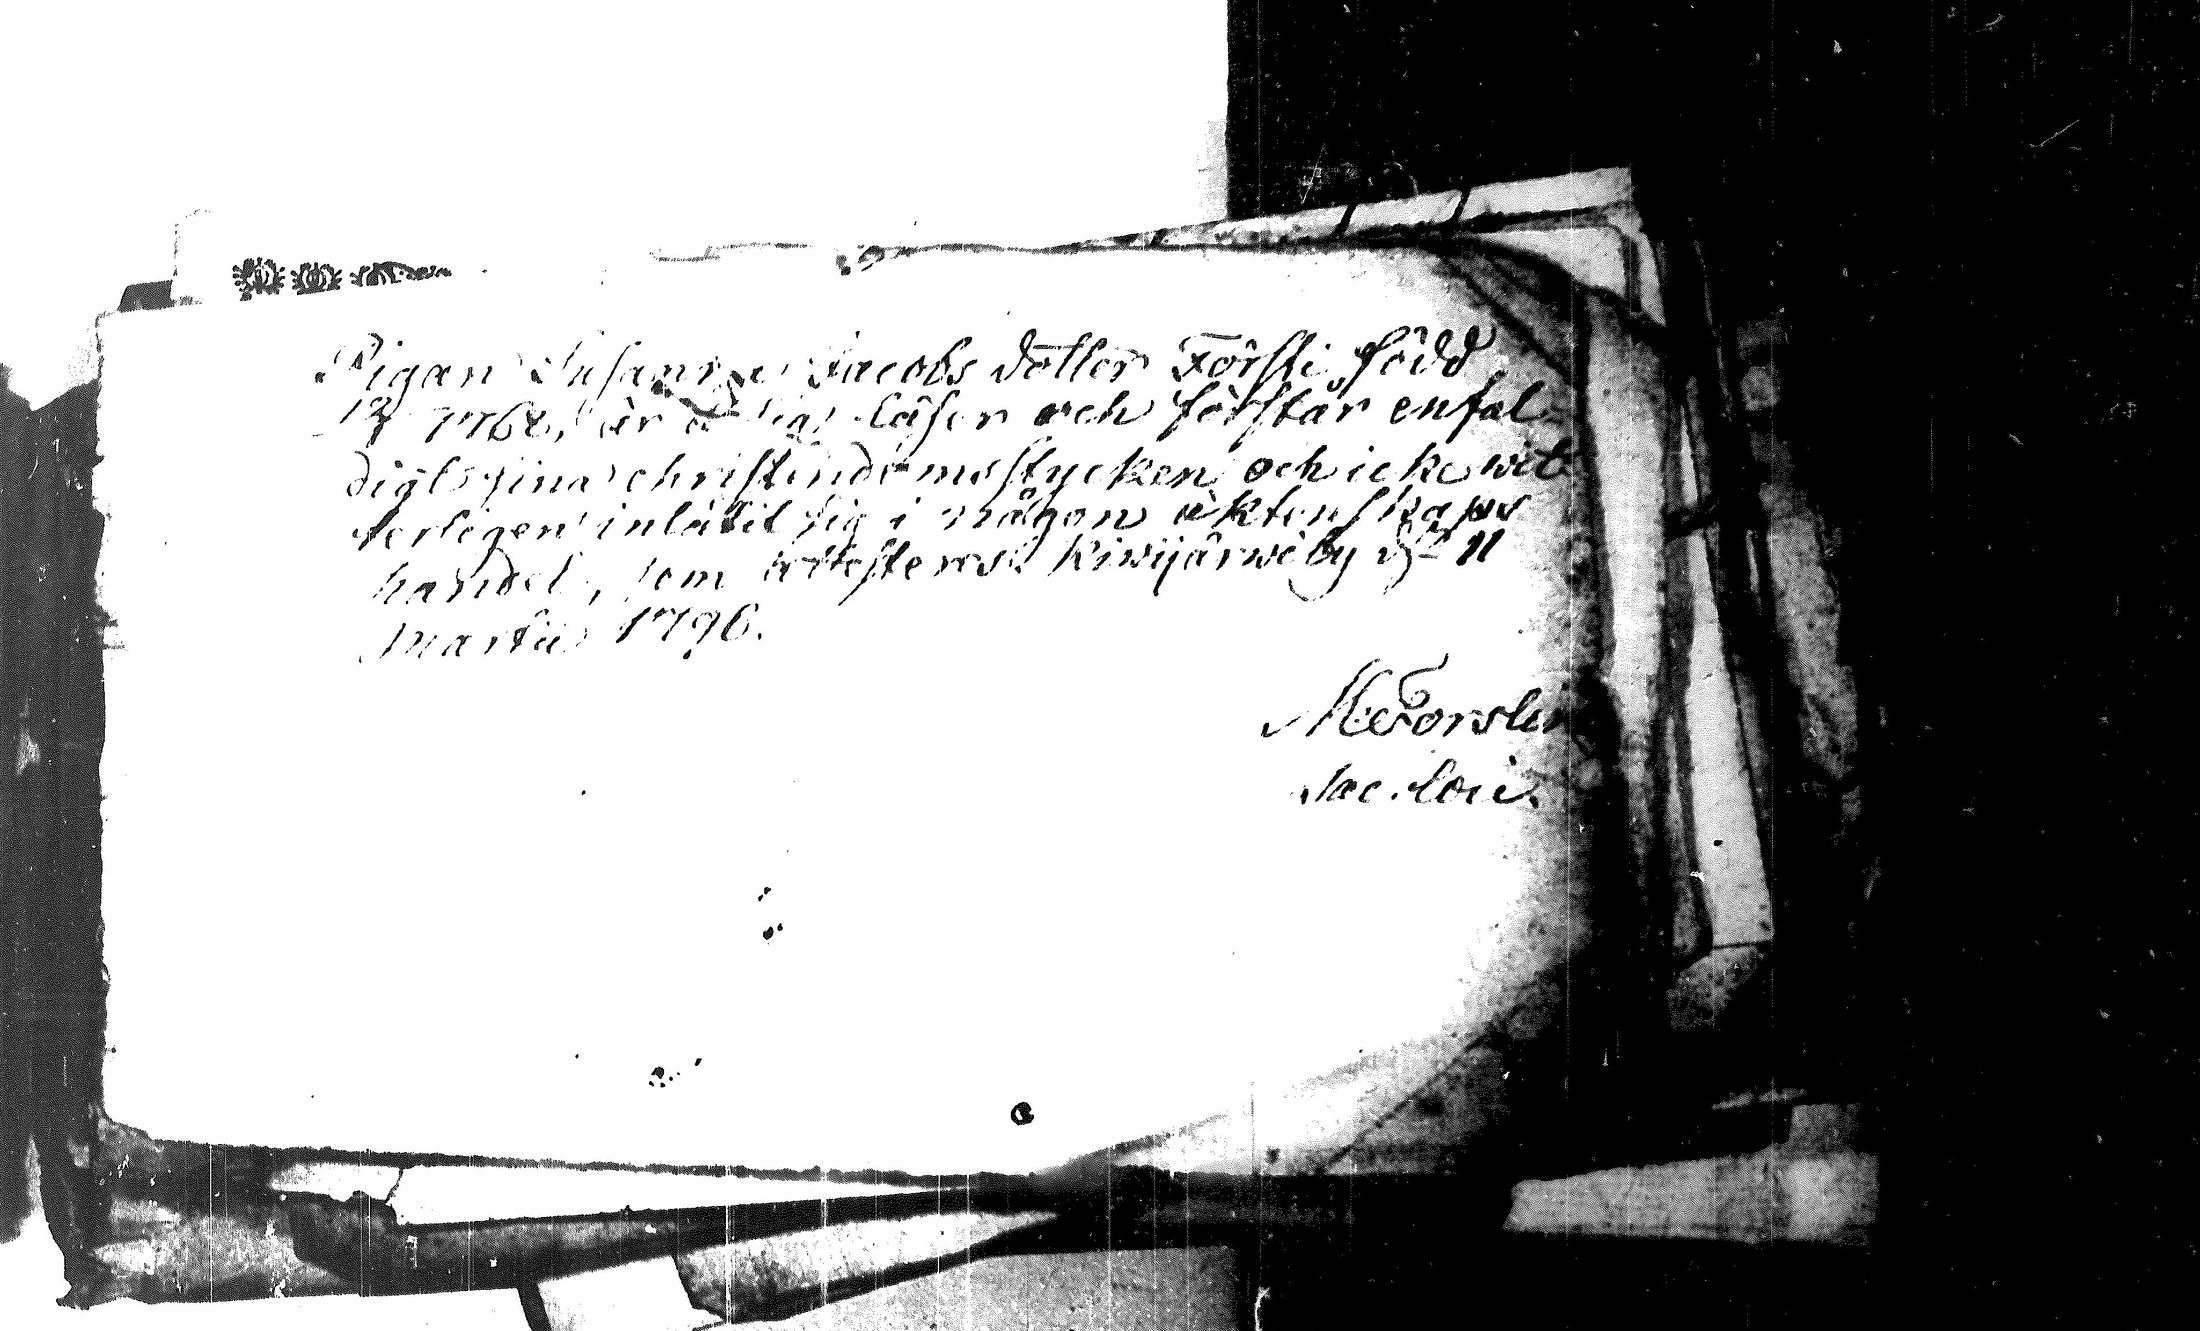 Pigan Susanna Jacobs dotter Försti född
1768, är ärlig, läser och förstår enfal
digt sina christendomsstycken och icke wet
terligen inlåtit sig i någon äktenskaps
handel, som attesteras Kiwijärwi by d. 11
Martii 1796.
M Forslin
Sac. loci.